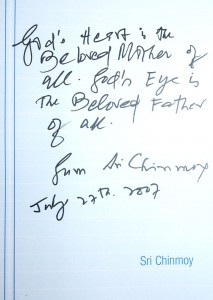 God's Heart is the
Beloved Mother of
all. God's Eye is
the Beloved Father
of all.
from Sri Chinmoy
July 27th. 2007
Sri Chinmoy